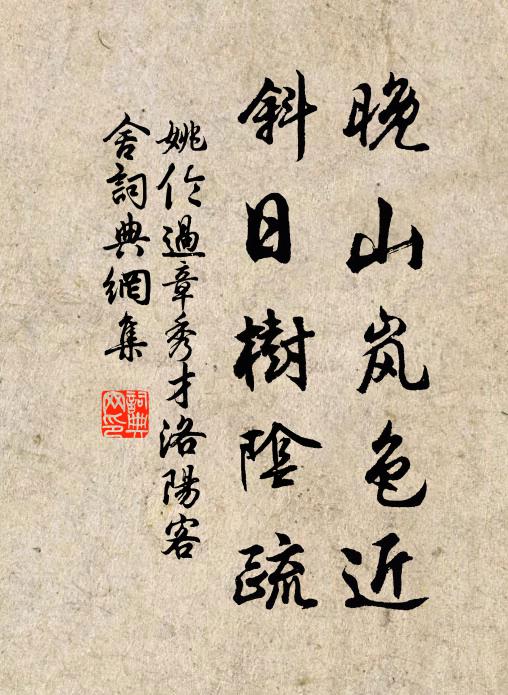 晚山岚色近
斜日樹陰疏
姚伦過章秀才洛陽客
舍詞典網集
詞典网印